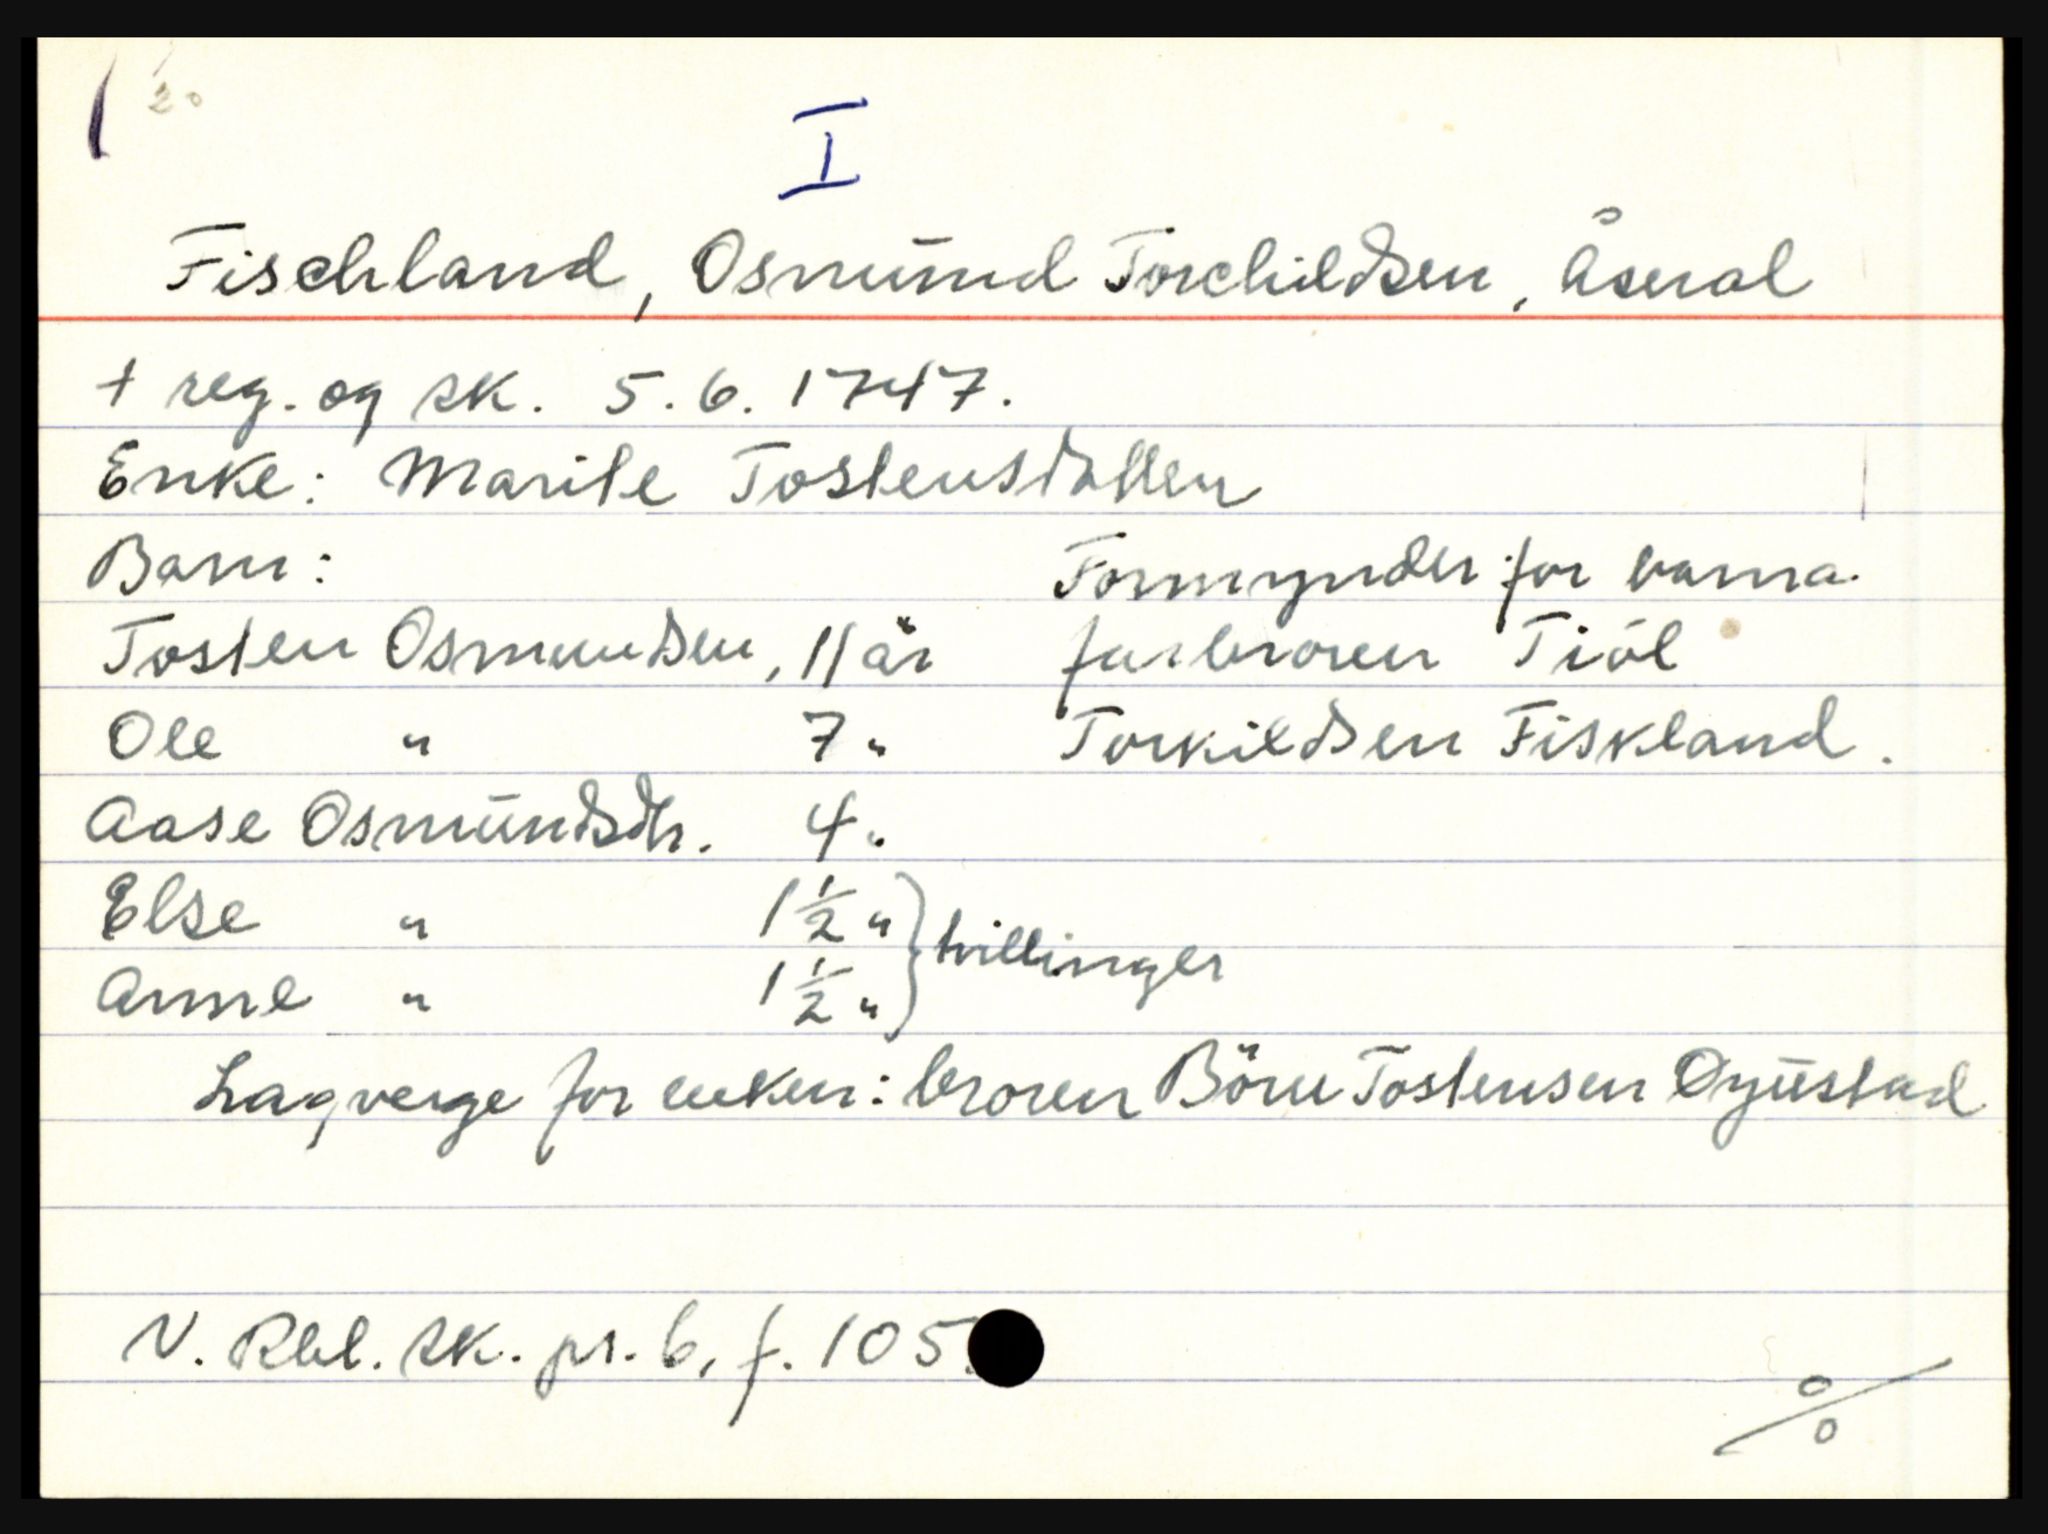 20
I
Fischland, Osmund Torchildsen, Åseral
+ reg. og sk. 5.6.1747.
Enke: Marite Tostensdatter
Barn:
Formynder for barna
Tosten Osmundsen, 11 år
farbroren Tiöl
Ole " 7 "
Torkildsen Fiskland.
Aase Osmundsdtr. 4 "
Else " 1 1/2 "
} tvillinger
Anne " 1 1/2 "
Lagverge for enken: broren Böru Tostensen Øyustad
N. Rbl. sk. pr. 6, f. 105.
%